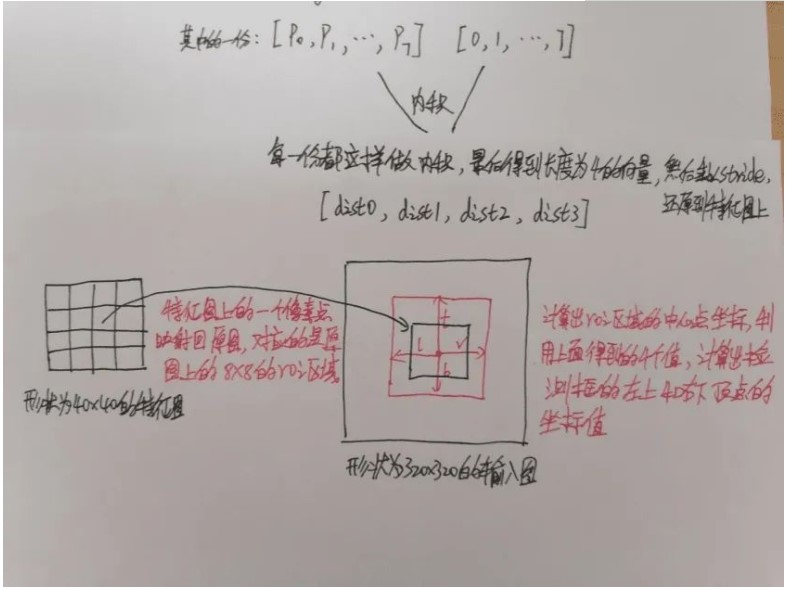 其中的一份: [P0, P1, ..., P7] [0, 1, ..., 7]
内积
每一份都这样做内积, 最后得到长度为4的向量, 然后乘以stride,
[dist0, dist1, dist2, dist3]
还原到特征图上
特征图上的一个像素点
映射回原图, 对应的是原
图上的8x8的roi区域
形状为40x40的特征图
t
l
r
b
形状为320x320的输入图
计算出roi区域的中心点坐标, 利
用上面得到的4个值, 计算出检
测框的左上和右下顶点的
坐标值